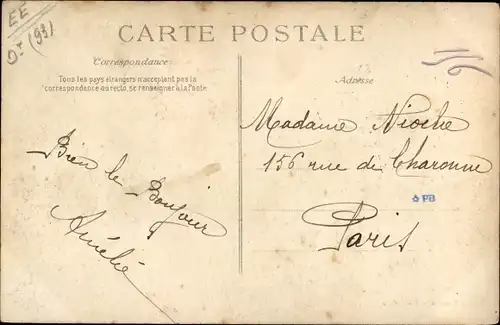 EE
Dt (93)
CARTE POSTALE
Correspondance
Tous les pays étrangers n'acceptent pas la
correspondance au recto, se renseigner à la Poste
Bien le Bonjour
Amélie
Adresse
Madame Nioche
156 rue de Charonne
Paris
PB